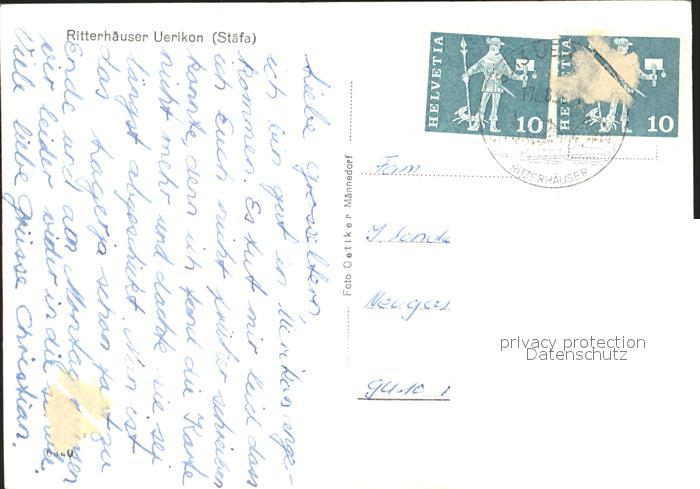 Ritterhäuser Uerikon (Stäfa)
Liebe Grosseltern
ich bin gut in Uerikon ange-
kommen. Es tut mir leid dass
ich Euch nicht früher schreiben
konnte, denn ich fand die Karte
nicht mehr und dachte sie sei
längst abgeschikt. Nun ist
das Lager ja schon fast zu
Ende und am Montag
wir leider wider in die
Viele liebe Grüsse Christian.
Foto Oetiker Männedorf
HELVETIA
10
HELVETIA
10
RITTERHÄUSER
Fam
privacy protection
Datenschutz